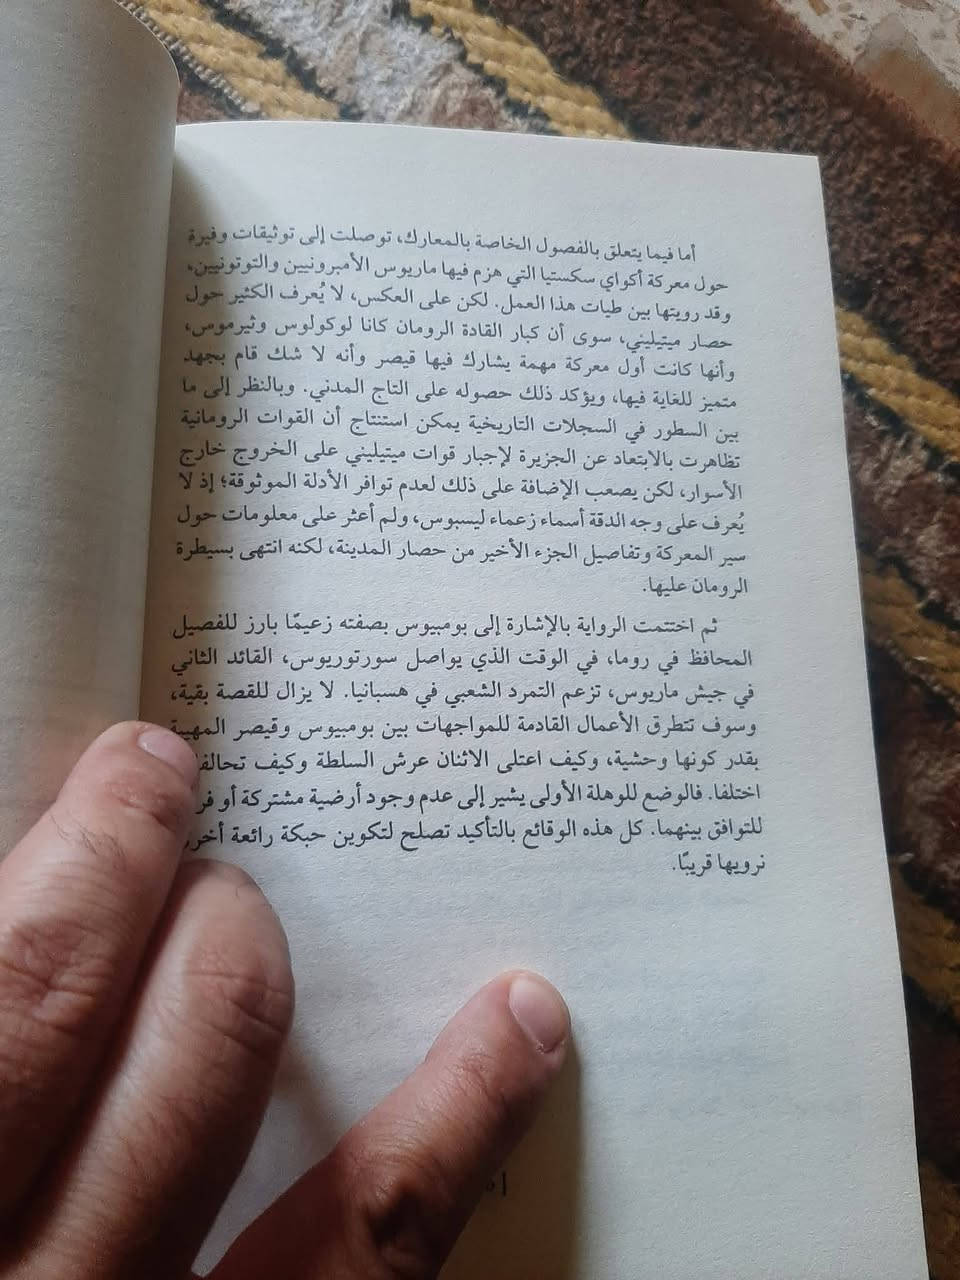 أما فيما يتعلق بالفصول الخاصة بالمعارك، توصلت إلى توثيقات وفيرة
حول معركة أكواي سكستيا التي هزم فيها ماريوس الأمبرونيين والتوتونيين،
وقد رويتها بين طيات هذا العمل. لكن على العكس، لا يُعرف الكثير حول
حصار ميتيليني، سوى أن كبار القادة الرومان كانا لوكولوس وثيرموس،
وأنها كانت أول معركة مهمة يشارك فيها قيصر وأنه لا شك قام بجهد
متميز للغاية فيها، ويؤكد ذلك حصوله على التاج المدني. وبالنظر إلى ما
بين السطور في السجلات التاريخية يمكن استنتاج أن القوات الرومانية
تظاهرت بالابتعاد عن الجزيرة لإجبار قوات ميتيليني على الخروج خارج
الأسوار، لكن يصعب الإضافة على ذلك لعدم توافر الأدلة الموثوقة؛ إذ لا
يُعرف على وجه الدقة أسماء زعماء ليسبوس، ولم أعثر على معلومات حول
سير المعركة وتفاصيل الجزء الأخير من حصار المدينة، لكنه انتهى بسيطرة
الرومان عليها.
ثم اختتمت الرواية بالإشارة إلى بومبيوس بصفته زعيمًا بارز للفصيل
المحافظ في روما، في الوقت الذي يواصل سورتوريوس، القائد الثاني
في جيش ماريوس، تزعم التمرد الشعبي في هسبانيا. لا يزال للقصة بقية،
وسوف تتطرق الأعمال القادمة للمواجهات بين بومبيوس وقيصر المهيبة
بقدر كونها وحشية، وكيف اعتلى الاثنان عرش السلطة وكيف
اختلفا. فالوضع للوهلة الأولى يشير إلى عدم وجود أرضية مشتركة أو
للتوافق بينهما. كل هذه الوقائع بالتأكيد تصلح لتكوين حبكة رائعة
نرويها قريبًا.